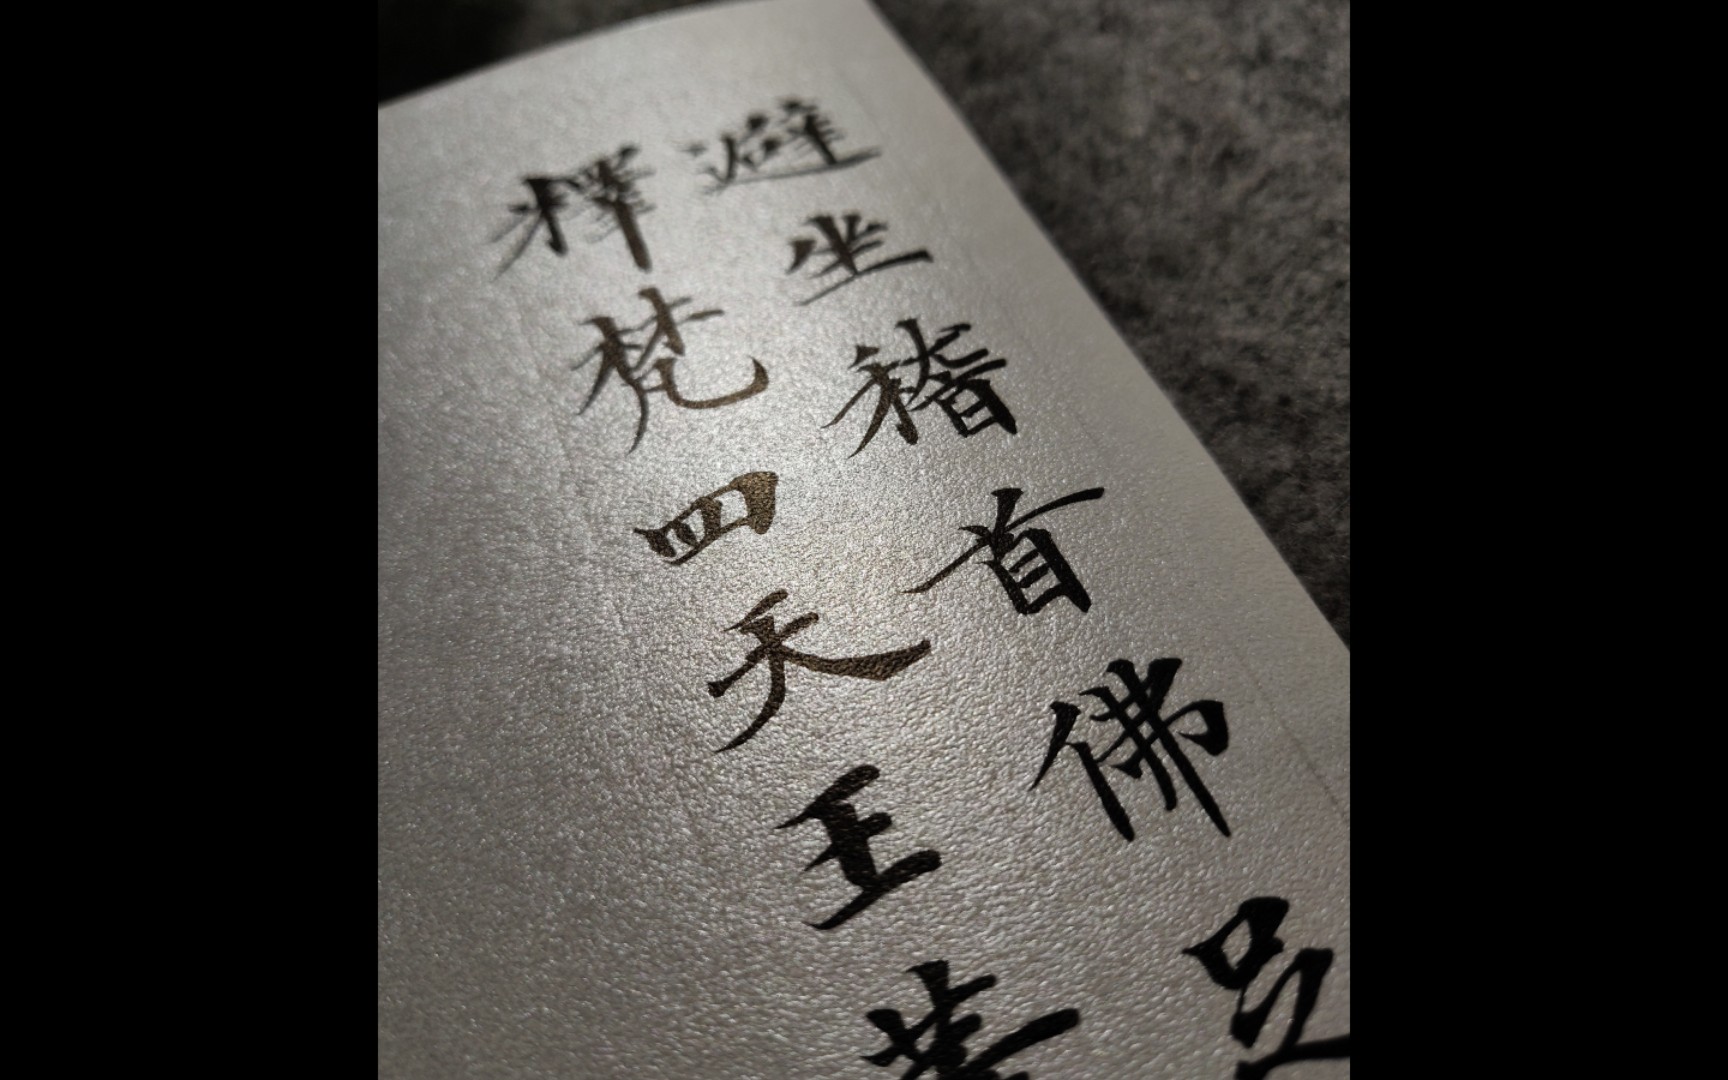 避坐稽首佛足
釋梵四天王